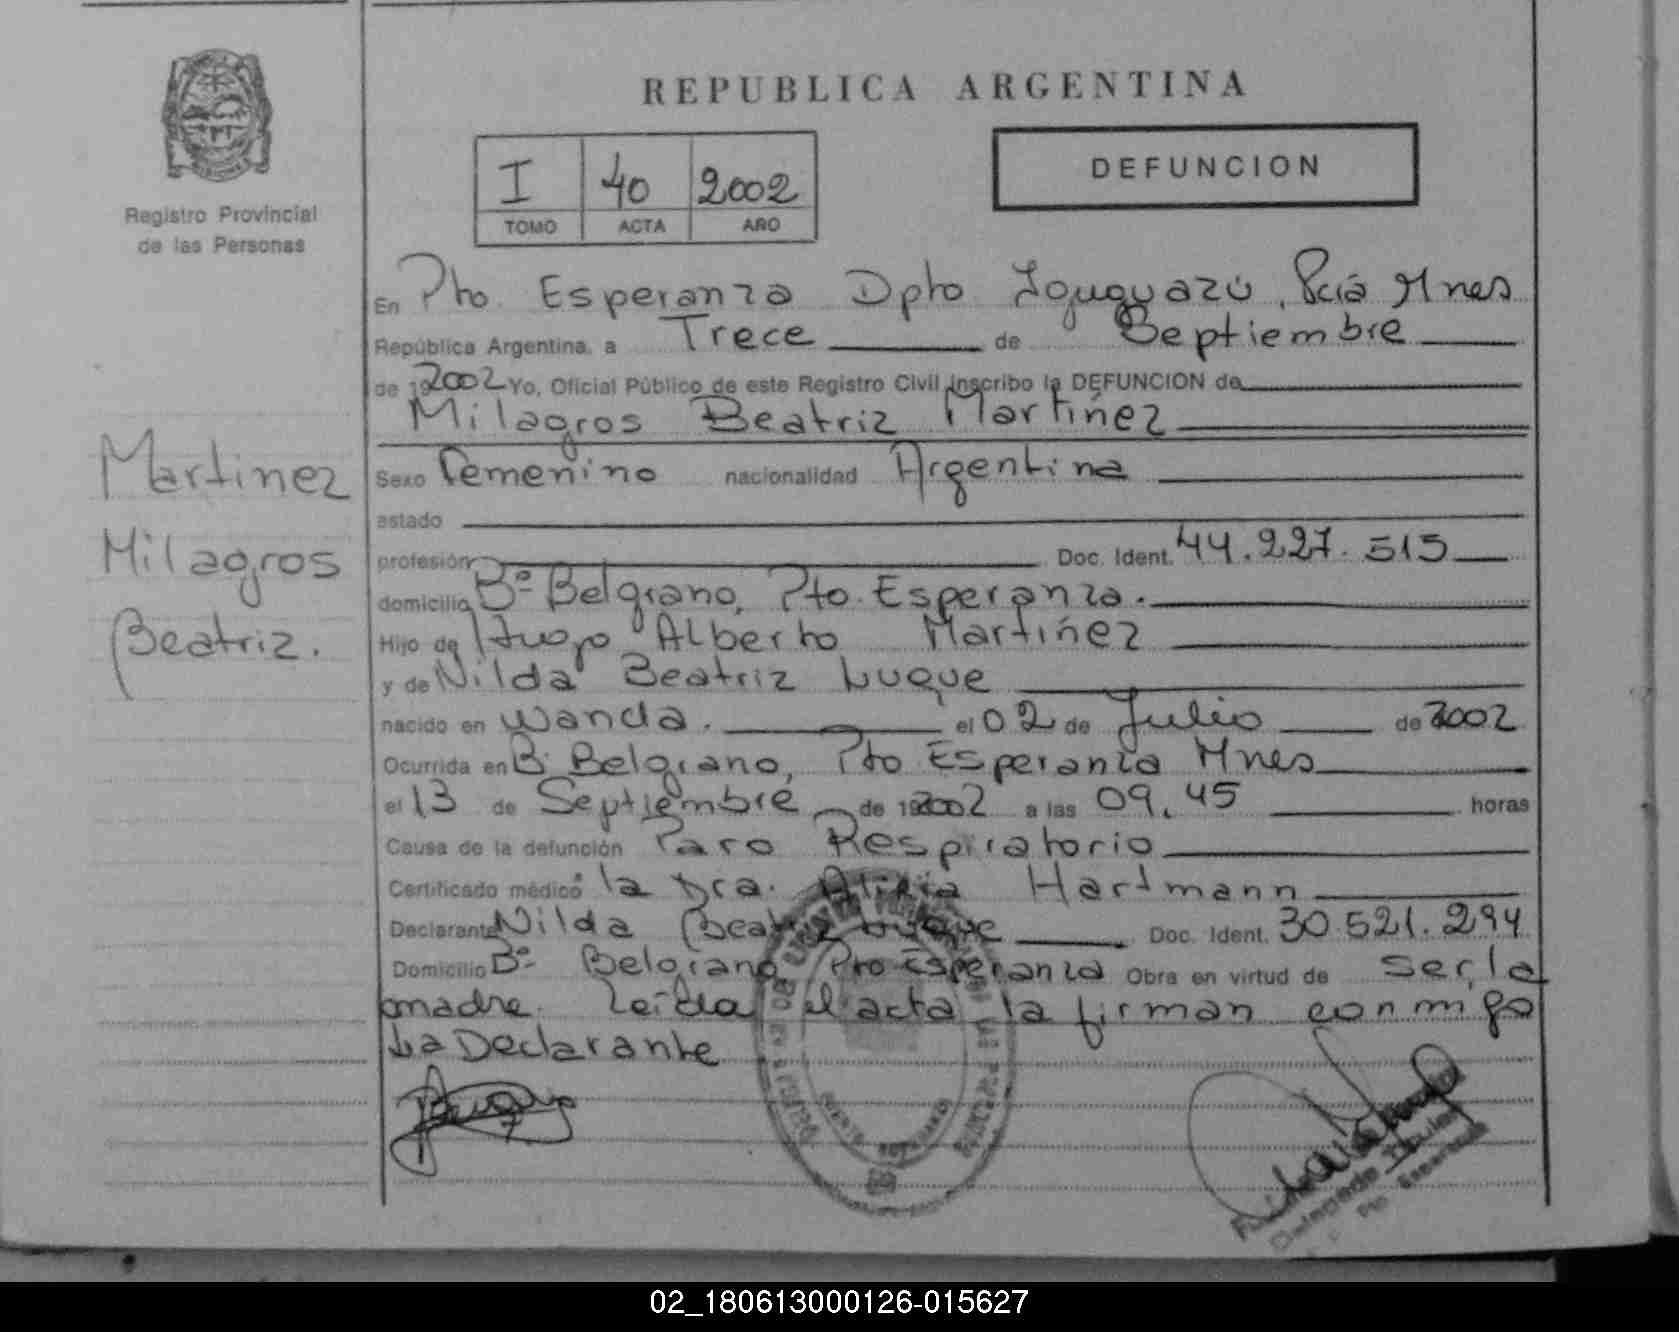 REPUBLICA ARGENTINA
I 40 2002
TOMO ACTA AÑO
DEFUNCION
Registro Provincial
de las Personas
Martinez
Milagros
Beatriz.
En Pto. Esperanza Dpto Iguguazú, Pcia Mnes
República Argentina, a Trece de Septiembre
de 192002 Yo, Oficial Público de este Registro Civil inscribo la DEFUNCION de
Milagros Beatriz Martinez
Sexo Femenino nacionalidad Argentina
estado
profesión Doc. Ident. 44.227.515
domicilio Bº Belgrano, Pto. Esperanza.
Hijo de Hugo Alberto Martinez
y de Nilda Beatriz Luque
nacido en Wanda. el 02 de Julio de 2002
Ocurrida en Bº Belgrano, Pto Esperanza Mnes
el 13 de Septiembre de 192002 a las 09,45 horas
Causa de la defunción Paro Respiratorio
Certificado médico la Dra. Alicia Hartmann
Declarante Nilda Beatriz Luque Doc. Ident. 30.521.294
Domicilio Bº Belgrano Pto Esperanza Obra en virtud de ser la
madre. Leída el acta la firman conmigo
La Declarante
02_180613000126-015627